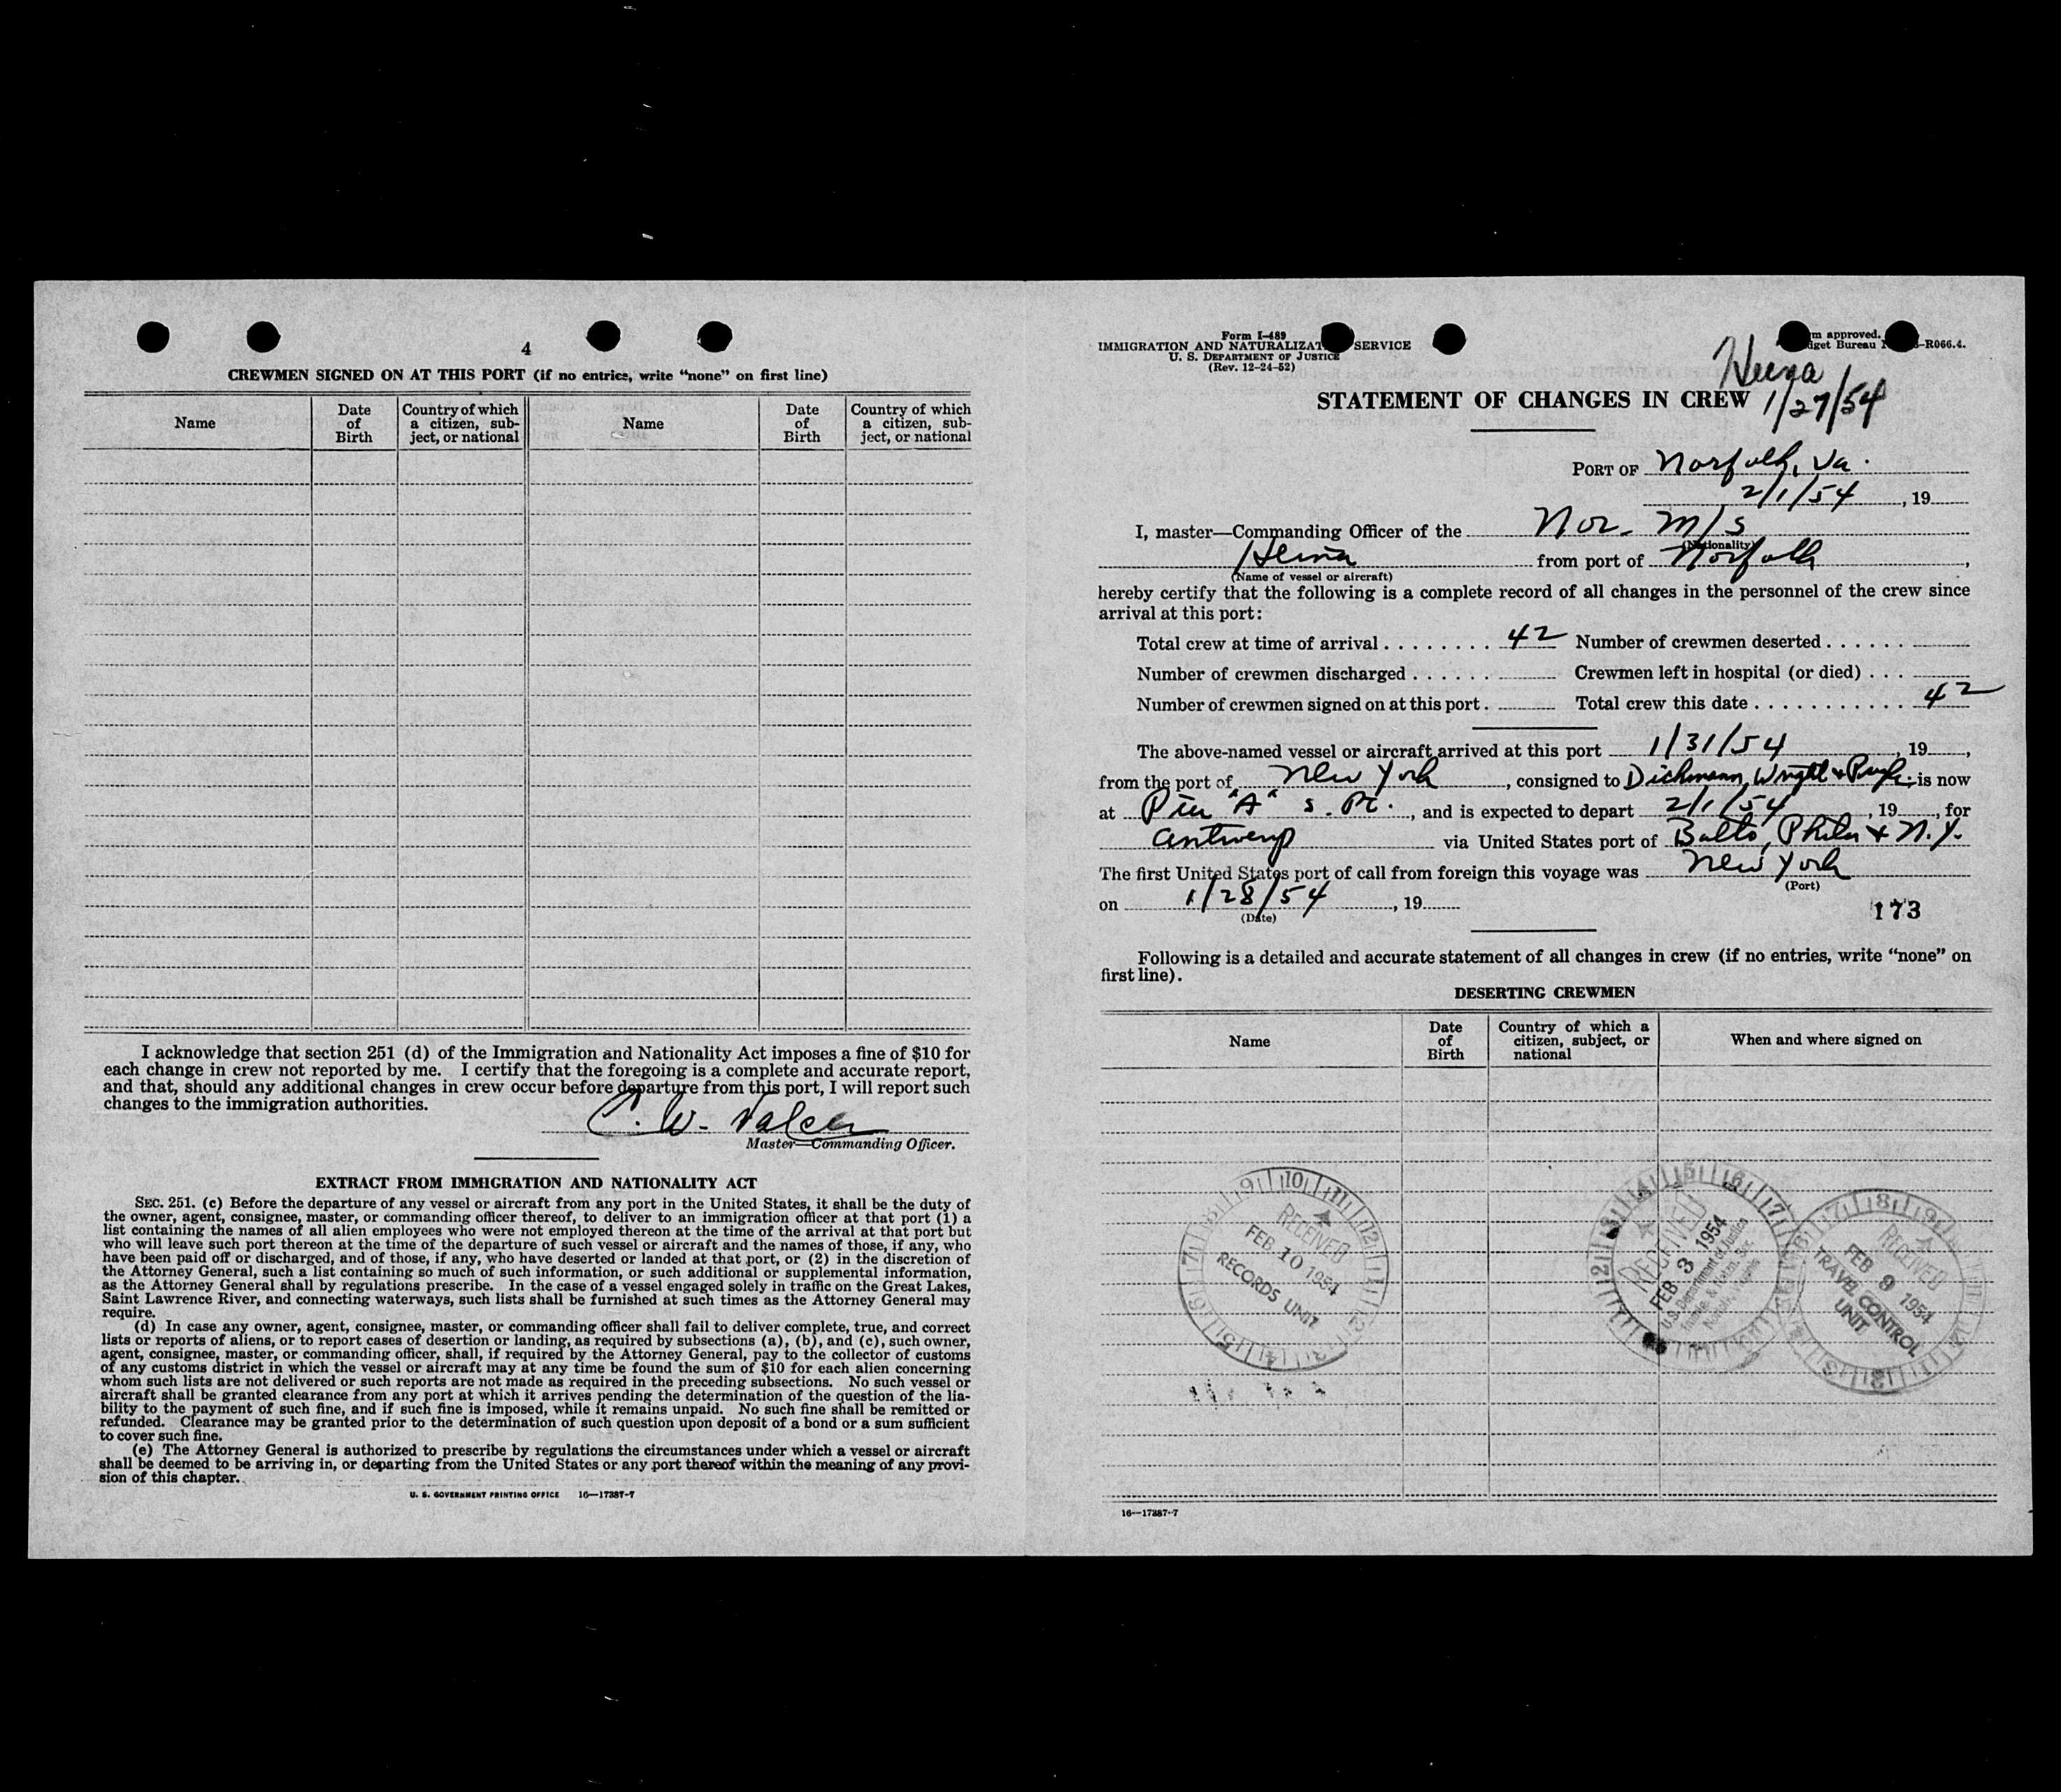 4
CREWMEN SIGNED ON AT THIS PORT (if no entries, write “none” on first line)
Name
Date of Birth
Country of which a citizen, subject, or national
Name
Date of Birth
Country of which a citizen, subject, or national
I acknowledge that section 251 (d) of the Immigration and Nationality Act imposes a fine of $10 for
each change in crew not reported by me. I certify that the foregoing is a complete and accurate report,
and that, should any additional changes in crew occur before departure from this port, I will report such
changes to the immigration authorities.
C. W.
Master—Commanding Officer.
EXTRACT FROM IMMIGRATION AND NATIONALITY ACT
SEC. 251. (c) Before the departure of any vessel or aircraft from any port in the United States, it shall be the duty of
the owner, agent, consignee, master, or commanding officer thereof, to deliver to an immigration officer at that port (1) a
list containing the names of all alien employees who were not employed thereon at the time of the arrival at that port but
who will leave such port thereon at the time of the departure of such vessel or aircraft and the names of those, if any, who
have been paid off or discharged, and of those, if any, who have deserted or landed at that port, or (2) in the discretion of
the Attorney General, such a list containing so much of such information, or such additional or supplemental information,
as the Attorney General shall by regulations prescribe. In the case of a vessel engaged solely in traffic on the Great Lakes,
Saint Lawrence River, and connecting waterways, such lists shall be furnished at such times as the Attorney General may
require.
(d) In case any owner, agent, consignee, master, or commanding officer shall fail to deliver complete, true, and correct
lists or reports of aliens, or to report cases of desertion or landing, as required by subsections (a), (b), and (c), such owner,
agent, consignee, master, or commanding officer, shall, if required by the Attorney General, pay to the collector of customs
of any customs district in which the vessel or aircraft may at any time be found the sum of $10 for each alien concerning
whom such lists are not delivered or such reports are not made as required in the preceding subsections. No such vessel or
aircraft shall be granted clearance from any port at which it arrives pending the determination of the question of the lia-
bility to the payment of such fine, and if such fine is imposed, while it remains unpaid. No such fine shall be remitted or
refunded. Clearance may be granted prior to the determination of such question upon deposit of a bond or a sum sufficient
to cover such fine.
(e) The Attorney General is authorized to prescribe by regulations the circumstances under which a vessel or aircraft
shall be deemed to be arriving in, or departing from the United States or any port thereof within the meaning of any provi-
sion of this chapter.
U. S. GOVERNMENT PRINTING OFFICE 16—17387-7
Form I-489
IMMIGRATION AND NATURALIZAT SERVICE
U. S. DEPARTMENT OF JUSTICE
(Rev. 12-24-52)
m approved.
dget Bureau -R066.4.
Heina
STATEMENT OF CHANGES IN CREW 1/27/54
PORT OF Norfolk, Va.
2/1/54, 19
I, master—Commanding Officer of the Nor. M/S
(Nationality)
Heina from port of Norfolk,
(Name of vessel or aircraft)
hereby certify that the following is a complete record of all changes in the personnel of the crew since
arrival at this port:
Total crew at time of arrival . . . . . . . . 42 Number of crewmen deserted . . . . . .
Number of crewmen discharged . . . . . . Crewmen left in hospital (or died) . . .
Number of crewmen signed on at this port . Total crew this date . . . . . . . . . . . 42
The above-named vessel or aircraft arrived at this port 1/31/54, 19,
from the port of New York, consigned to Dichmann, Wright & Pugh, is now
at Pier "A" s. Pt., and is expected to depart 2/1/54, 19, for
Antwerp via United States port of Balto, Phila & N.Y.
The first United States port of call from foreign this voyage was New York
(Port)
on 1/28/54, 19
(Date)
173
Following is a detailed and accurate statement of all changes in crew (if no entries, write “none” on
first line).
DESERTING CREWMEN
Name
Date of Birth
Country of which a citizen, subject, or national
When and where signed on
RECEIVED
FEB 10 1954
RECORDS UNIT
RECEIVED
FEB 3 1954
U.S. Department of Justice
RECEIVED
FEB 9 1954
TRAVEL CONTROL
UNIT
16—17387-7